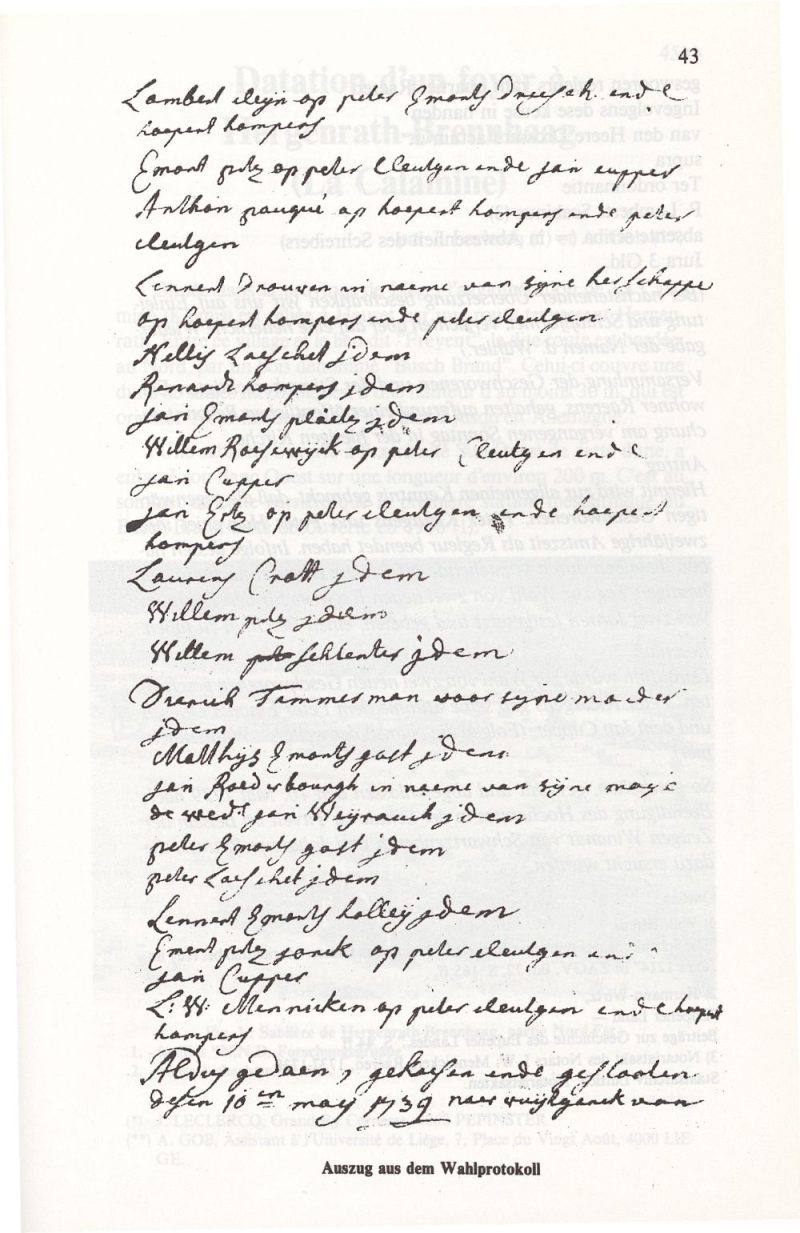 43
Lambert cleijn op peter Emonts Dreesch. ende
hoepert hompers
Emont putz op peter Cleutgen ende jan cupper
Anthon pauqué op hoepert hompers ende peter
cleutgen
Lennert Drouwen in naeme van sijne herschappe
op hoepert hompers ende peter cleutgen
Nellis Laschet jdem
Renardt hompers jdem
jan Emonts jdem
Willem op peter Cleutgen ende
jan Cupper
jan op peter cleutgen ende hoepert
hompers
Laurens Crott jdem
Willem putz jdem
Willem schlenter jdem
Dierich Timmerman voor sijne moeder
jdem
Matthijs Emonts gast jdem
jan in naeme van sijne
de wed: jan Weijrauch jdem
peter Emonts gast jdem
peter Laschet jdem
Lennert Emonts holleij jdem
Emont putz jonck op peter cleutgen ende
jan Cupper
L: W: Mennicken op peter cleutgen ende hoepert
hompers
Aldus gedaen, gekoesen ende geslooten
desen 10 en maij 1739 naer van
Auszug aus dem Wahlprotokoll